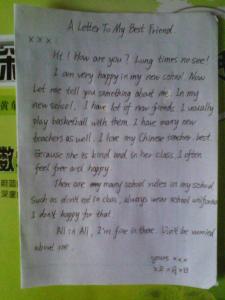 A Letter To My Best Friend
×××:
Hi! How are you? Lung times no see!
I am very happy in my new school. Now
Let me tell you something about me. In my
new school. I have lot of new friends. I usually
play basketball with them. I have many new
teachers as well. I love my Chinese teacher best.
Because she is kind and in her class, I often
feel free and happy.
There are many school rules in my school
Such as don't eat in class, always wear school uniforms
I don't happy for that.
All in All, I'm fine in there. Don't be worried
about me.
yours ×××
×年×月×日
深
数